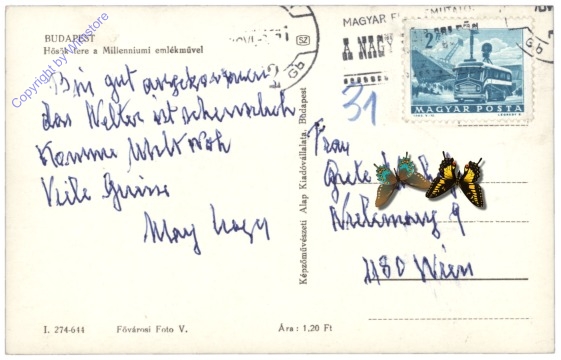 Copyright by Wnrstore
BUDAPEST
Hősök tere a Millenniumi emlékművel
SZ
MAGYAR
A NAGY
Gb
Gb
2
MAGYAR POSTA
31
Bin gut angekommen
das Wetter ist scheusslich
komme Mittwoch
Viele Grüsse
Frau
Grete
9
1180 Wien
Képzőművészeti Alap Kiadóvállalata, Budapest
I. 274-644 Fővárosi Foto V. Ára: 1,20 Ft